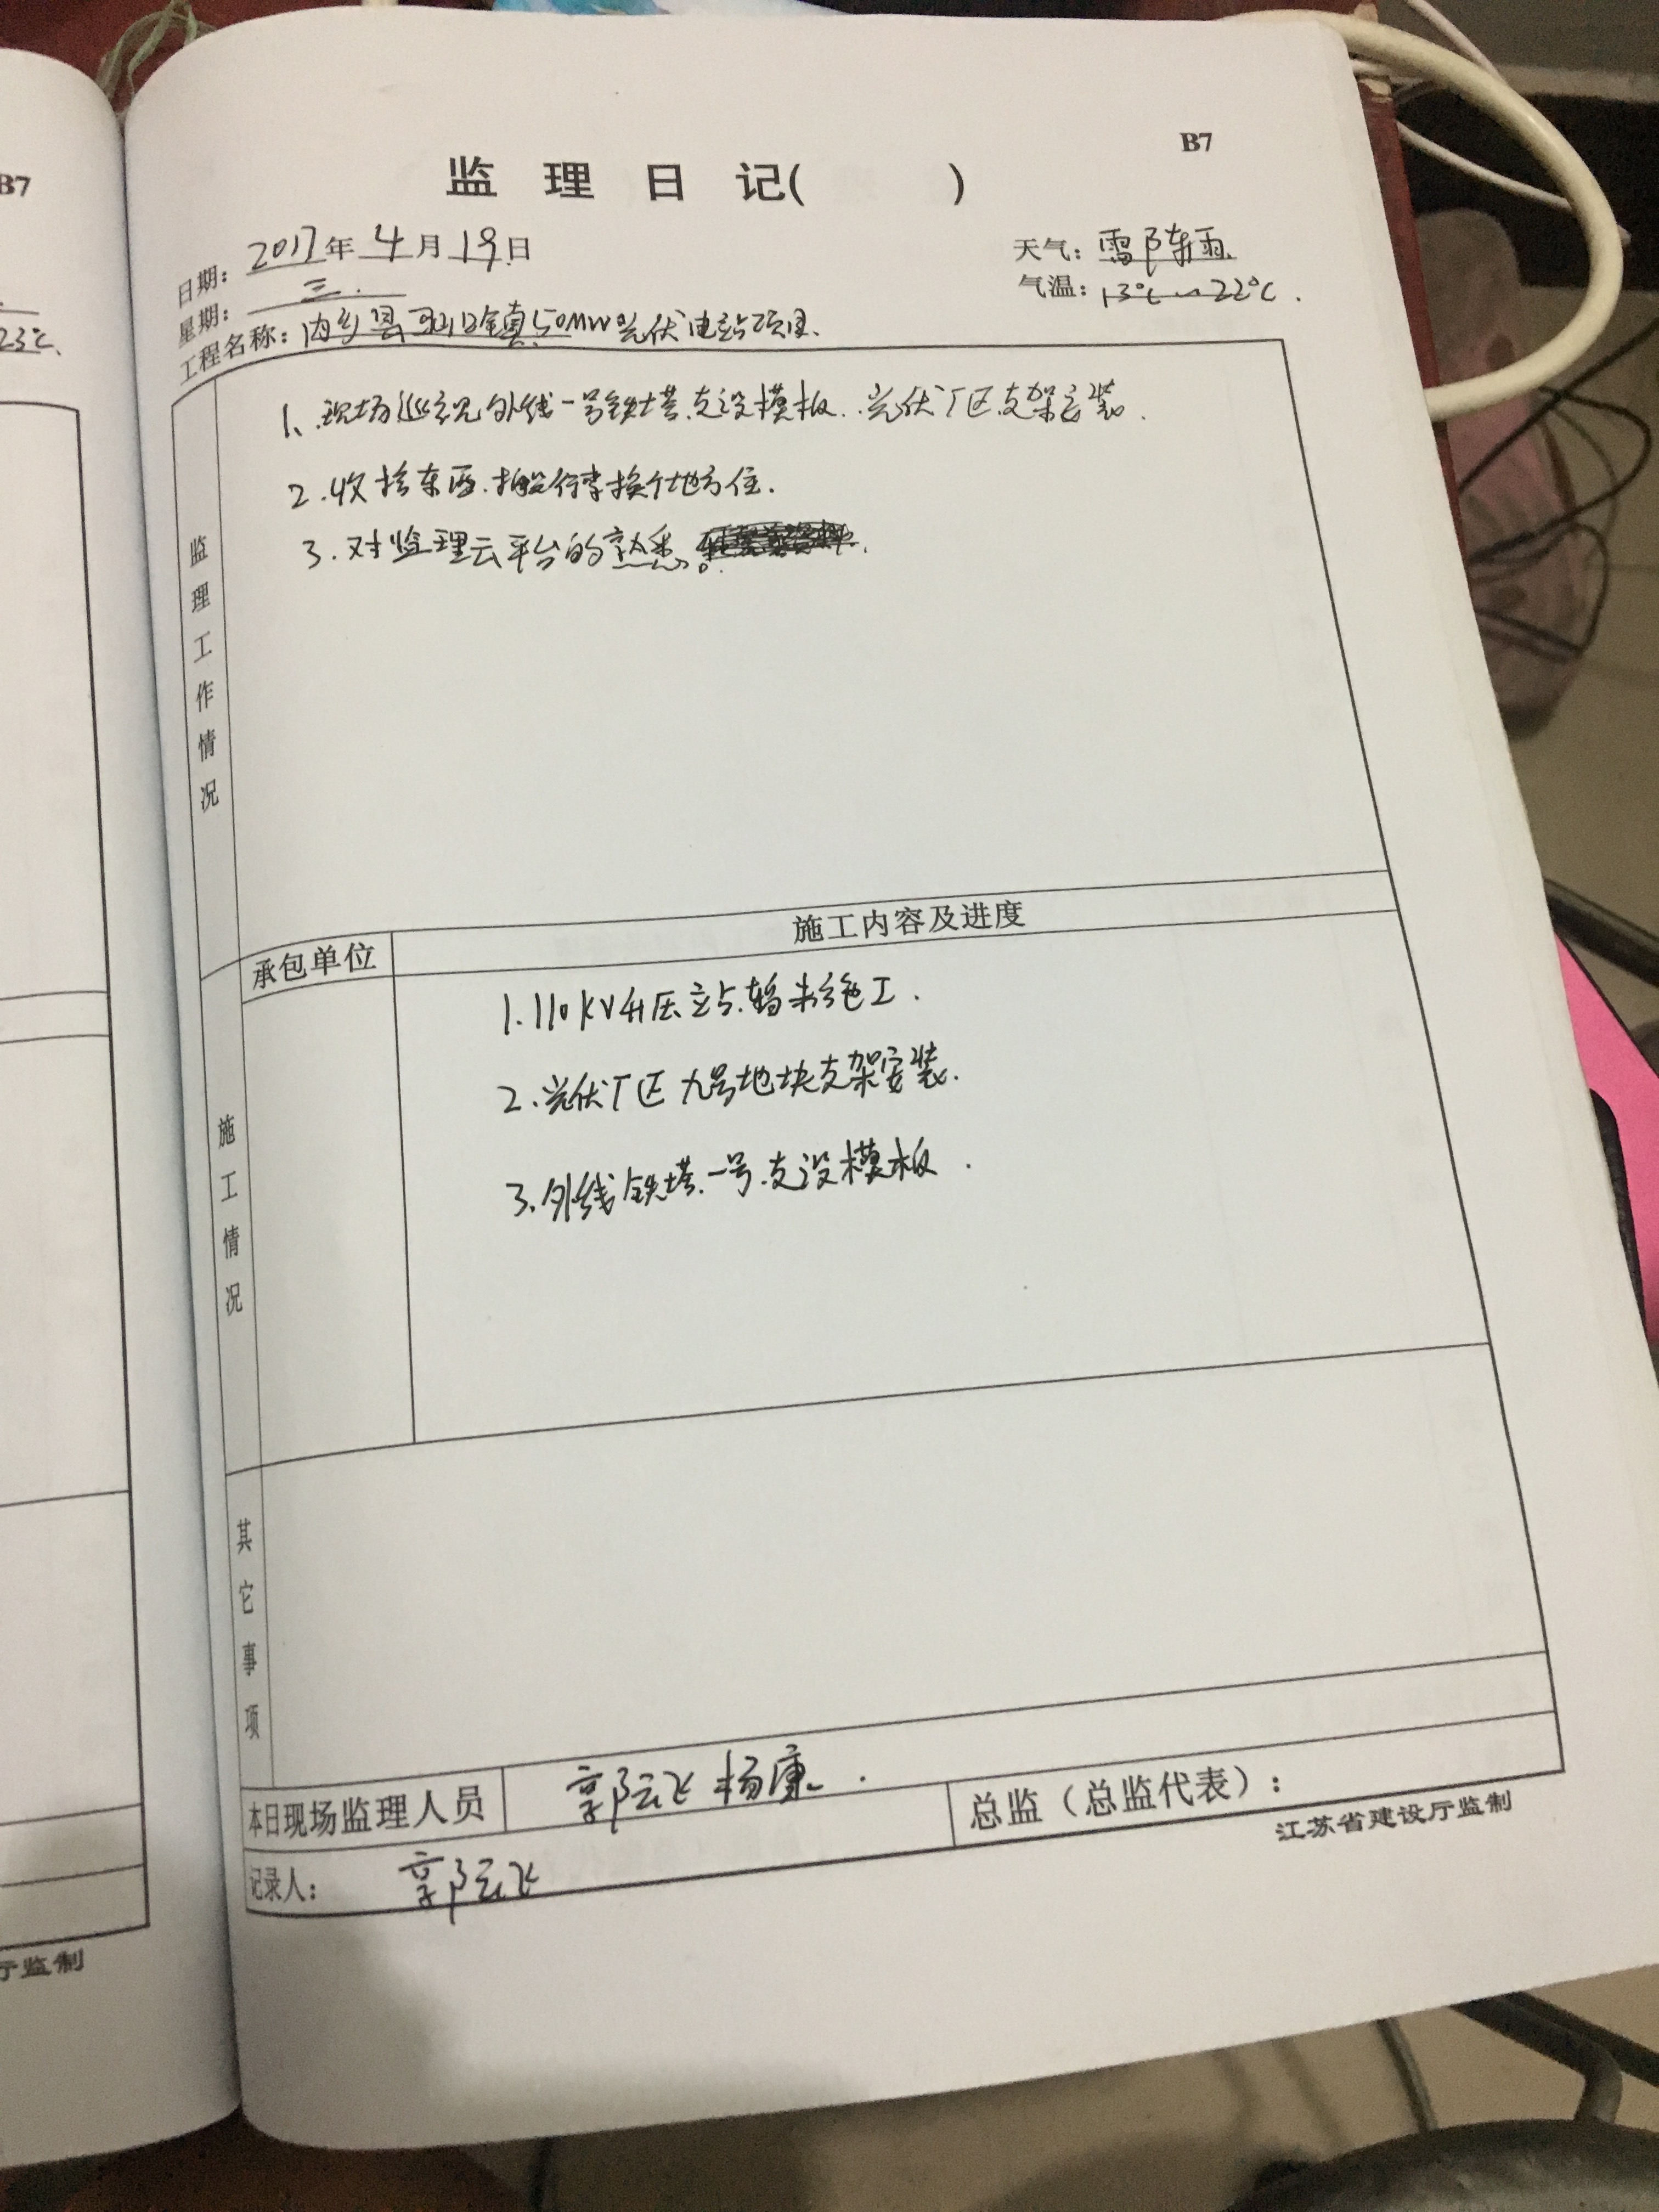 B7
B7
监 理 日 记( )
日期: 2017年 4月 19日
天气: 雷阵雨.
星期: 三.
气温: 13℃~22℃.
23℃.
工程名称: 内乡县马山口镇50MW光伏电站项目.
1、现场巡视外线一号铁塔.支设模板.光伏厂区支架安装.
2.收拾东西.搬行李换个地方住.
3.对监理云平台的熟悉。
监理工作情况
承包单位
施工内容及进度
1.110KV升压站.暂未施工.
2.光伏厂区九号地块支架安装.
3.外线铁塔.一号.支设模板.
施工情况
其它事项
本日现场监理人员
郭云飞 杨康.
总监（总监代表）:
记录人:
郭云飞
江苏省建设厅监制
厅监制